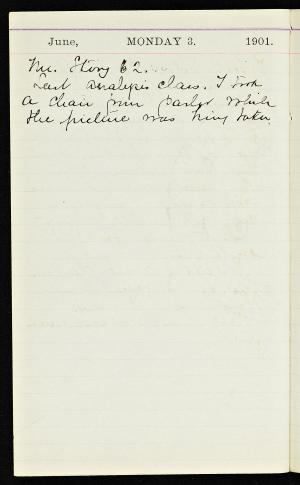 June, MONDAY 3. 1901.
Mr. Story 62.
Last Analysis Class. I took
a chair from parlor while
the picture was being taken